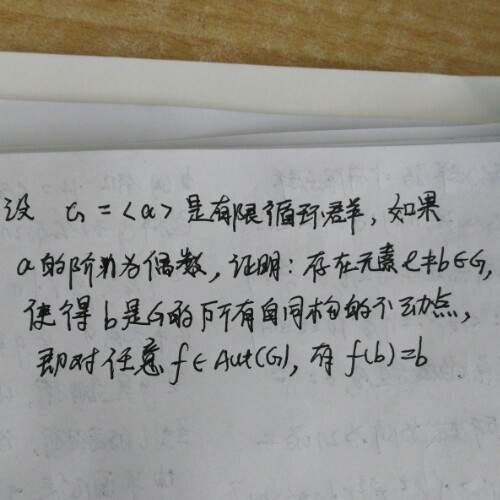 设 G = <a> 是有限循环群, 如果
a的阶为偶数, 证明: 存在元素 e≠b∈G,
使得 b 是G的所有自同构的不动点,
即对任意 f∈Aut(G), 有 f(b)=b